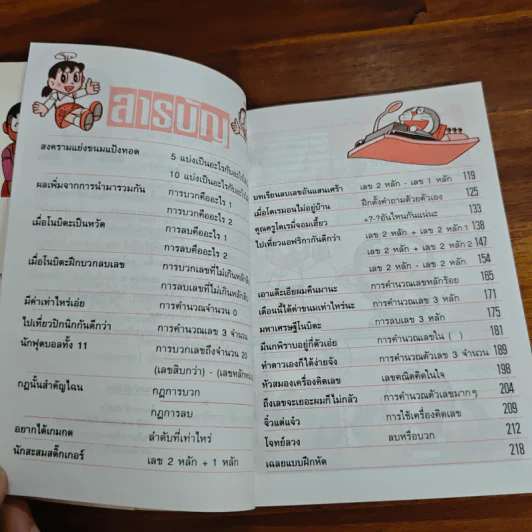 สารบัญ
สงครามแย่งขนมแป้งทอด
5 แบ่งเป็นอะไรกับอะไร
10 แบ่งเป็นอะไรกับอะไร
ผลเพิ่มจากการนำมารวมกัน การบวกคืออะไร 1
การบวกคืออะไร 2
เมื่อโนบิตะเป็นหวัด การลบคืออะไร 1
การลบคืออะไร 2
เมื่อโนบิตะฝึกบวกลบเลข การบวกเลขที่ไม่เกินหลัก
การลบเลขที่ไม่เกินหลัก
มีค่าเท่าไหร่เอ่ย การคำนวณจำนวน 0
ไปเที่ยวปิกนิกกันดีกว่า การคำนวณเลข 3 จำนวน
นักฟุตบอลทั้ง 11 การบวกเลขถึงจำนวน 20
(เลขสิบกว่า) - (เลขหลัก
กฎนั้นสำคัญไฉน กฎการบวก
กฎการลบ
อยากได้เกมกด ลำดับที่เท่าไหร่
นักสะสมสติ๊กเกอร์ เลข 2 หลัก + 1 หลัก
บทเรียนลบเลขอันแสนเศร้า เลข 2 หลัก - เลข 1 หลัก 119
เมื่อโดเรมอนไม่อยู่บ้าน ฝึกตั้งคำถามด้วยตัวเอง 125
คุณครูโดเรมี่จอมเฮี้ยว +?-?อันไหนกันแน่นะ 133
ไปเที่ยวแอฟริกากันดีกว่า เลข 2 หลัก + เลข 2 หลัก 1 138
เลข 2 หลัก + เลข 2 หลัก 2 147
เลข 2 หลัก - เลข 2 หลัก 154
เอาแต๊ะเอียผมคืนมานะ การคำนวณเลขหลักร้อย 165
เดือนนี้ได้ค่าขนมเท่าไหร่นะ การคำนวณเลข 3 หลัก 171
มหาเศรษฐีโนบิตะ การลบเลข 3 หลัก 175
มีนกพิราบอยู่กี่ตัวเอ่ย การคำนวณเลขใน ( ) 181
ทำดาวเองก็ได้ง่ายจัง การคำนวณตัวเลข 3 จำนวน 189
หัวสมองเครื่องคิดเลข เลขคณิตคิดในใจ 198
ถึงเลขจะเยอะผมก็ไม่กลัว การคำนวณตัวเลขมากๆ 204
จิ๋วแต่แจ๋ว การใช้เครื่องคิดเลข 209
โจทย์ลวง ลบหรือบวก 212
เฉลยแบบฝึกหัด 218